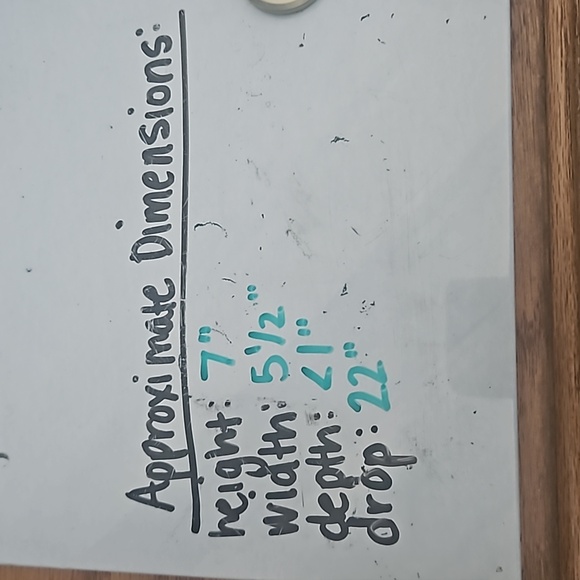 Approximate Dimensions:
height: 7"
width: 5 1/2"
depth: <1"
drop: 22"